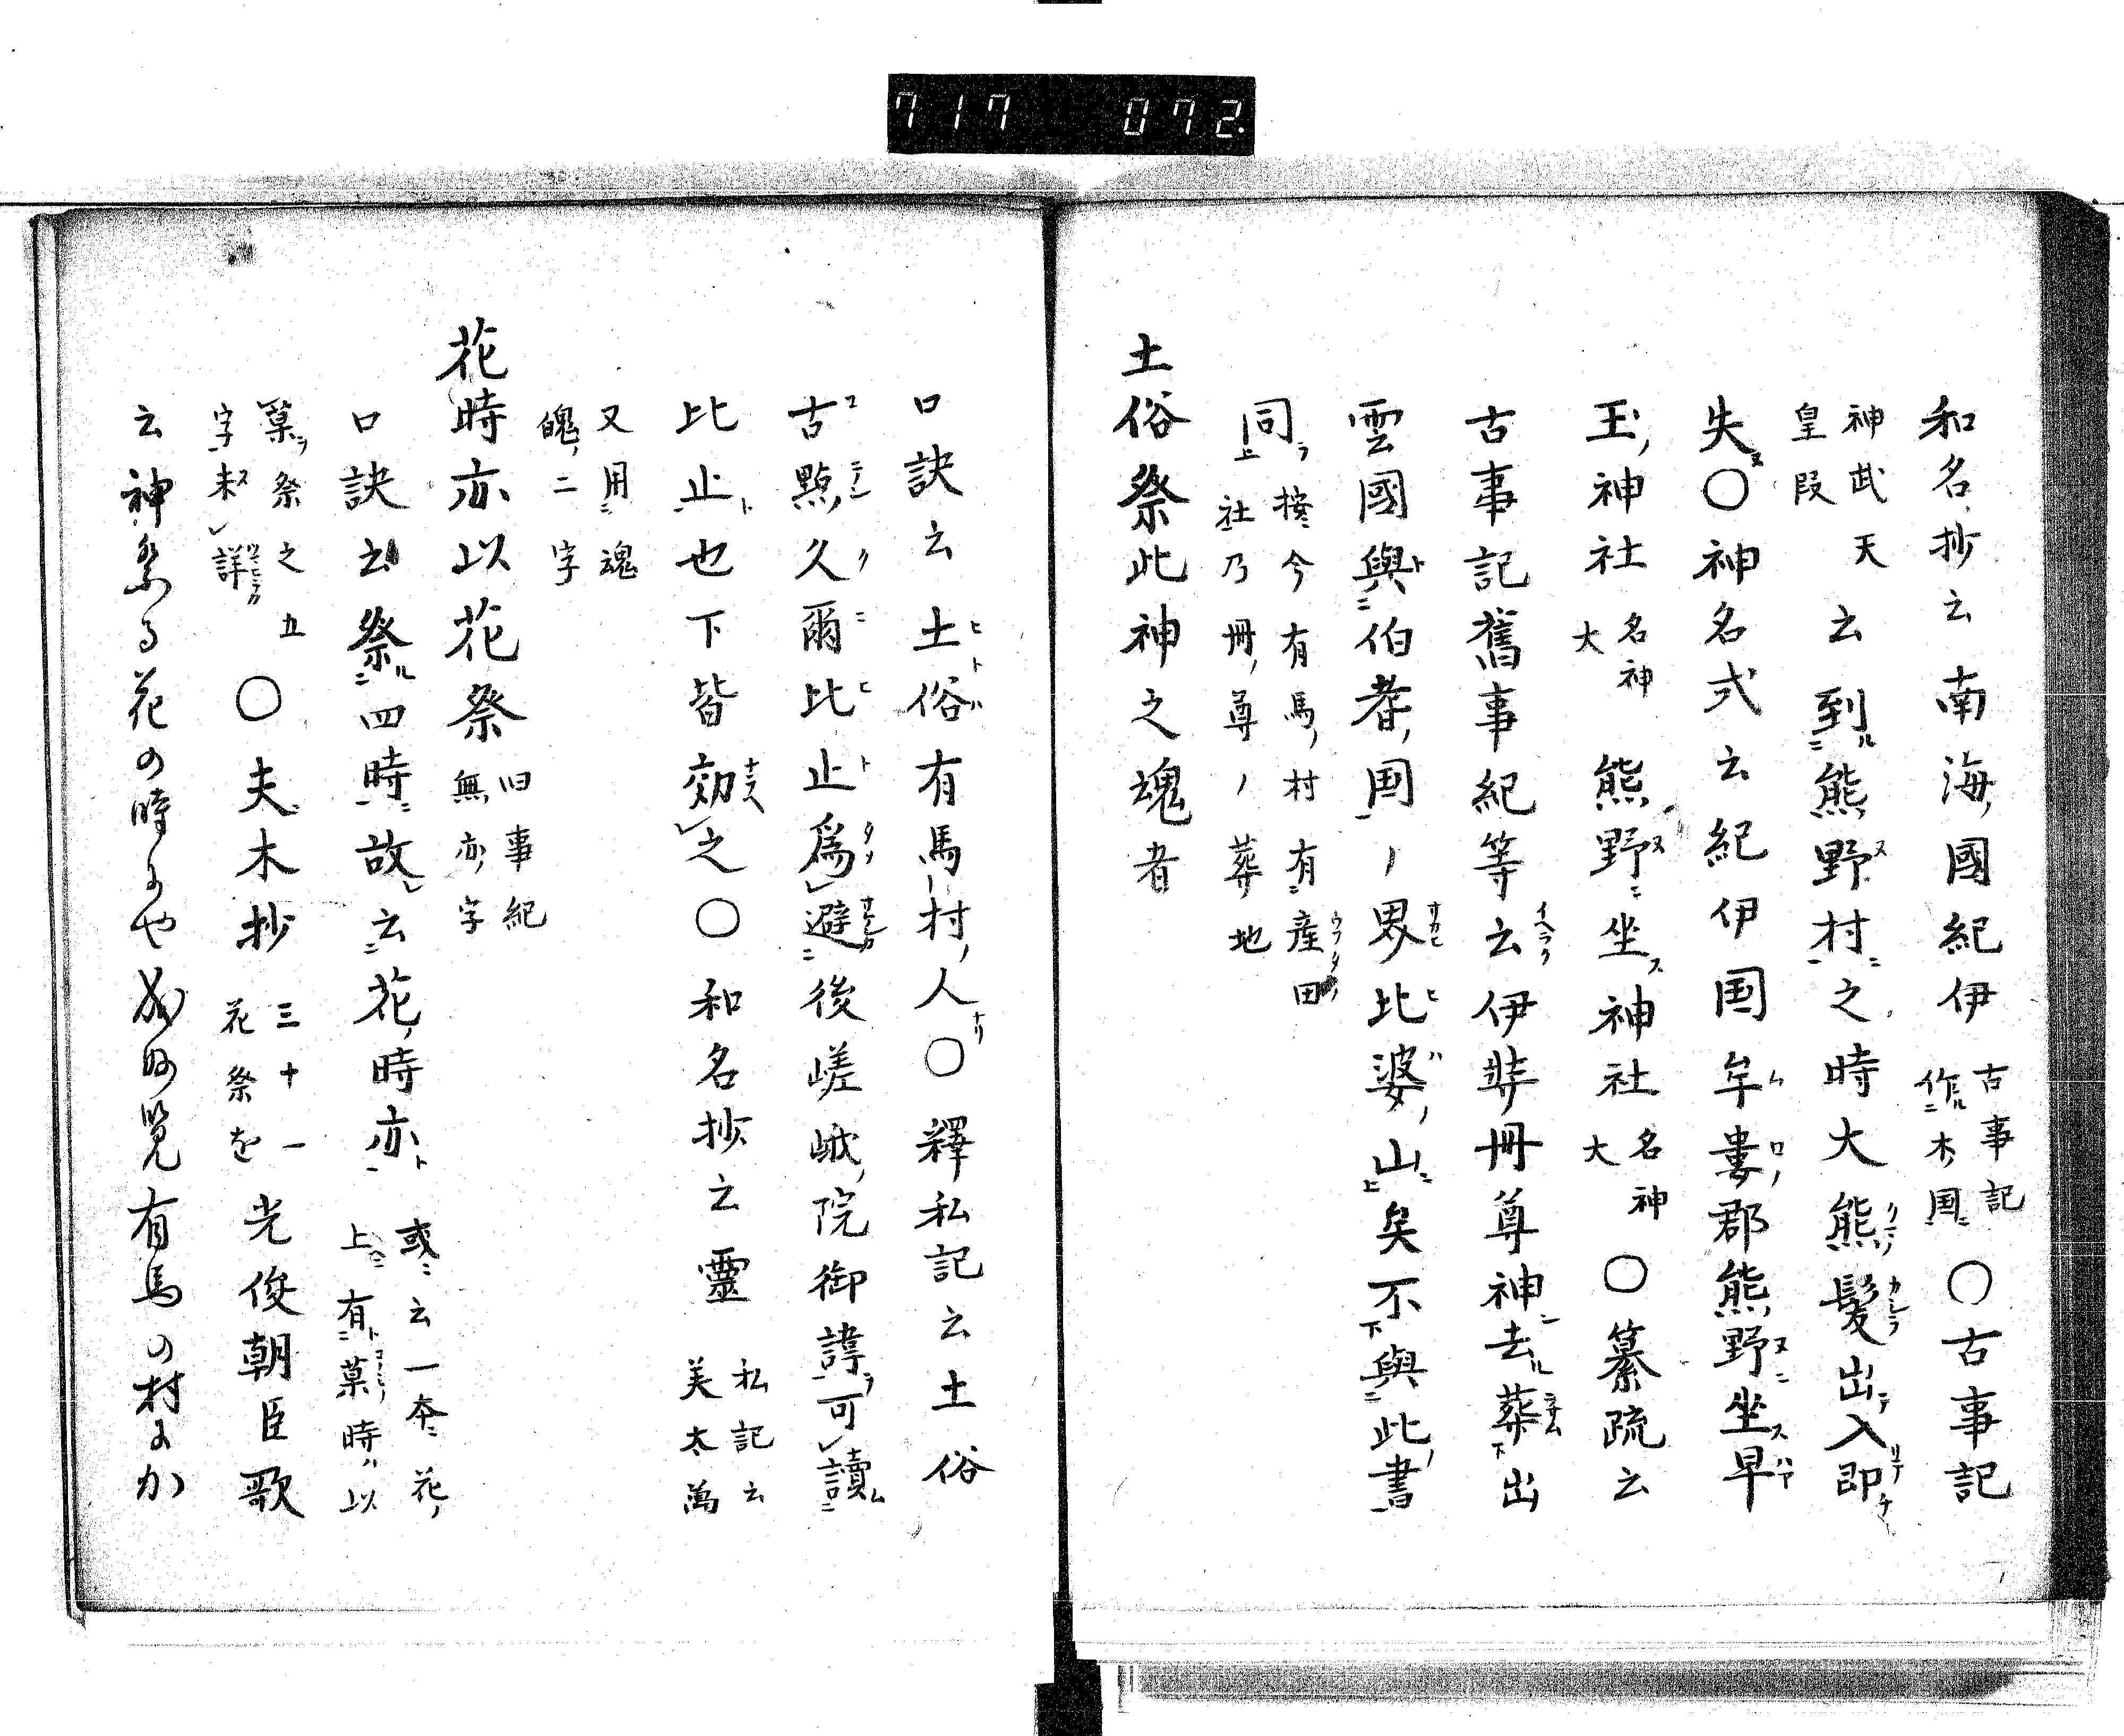 717 072.
和名抄云南海國紀伊 古事記作木国 〇古事記
神武天皇段 云到熊野村之時大熊髪出入即
失〇神名式云紀伊国牟婁郡熊野坐早
玉神社 名神大 熊野坐神社 名神大 〇纂疏云
古事記舊事紀等云伊弉冊尊神去葬出
雲國與伯耆国ノ界比婆山矣不與此書
同 按今有馬村有産田社乃冊尊ノ葬地
土俗祭此神之魂者
口訣云土俗有馬村人〇釋私記云土俗
古點久爾比止爲避後嵯峨院御諱可讀
比止也下皆効之〇和名抄云靈 私記云美太萬
又用魂魄二字
花時亦以花祭 旧事紀無亦字
口訣云祭四時故云花時亦 或云一本花上有菓時以
菓祭之五字未詳 〇夫木抄 三十一花祭を 光俊朝臣歌
云神祭る花の時にや 有馬の村にか